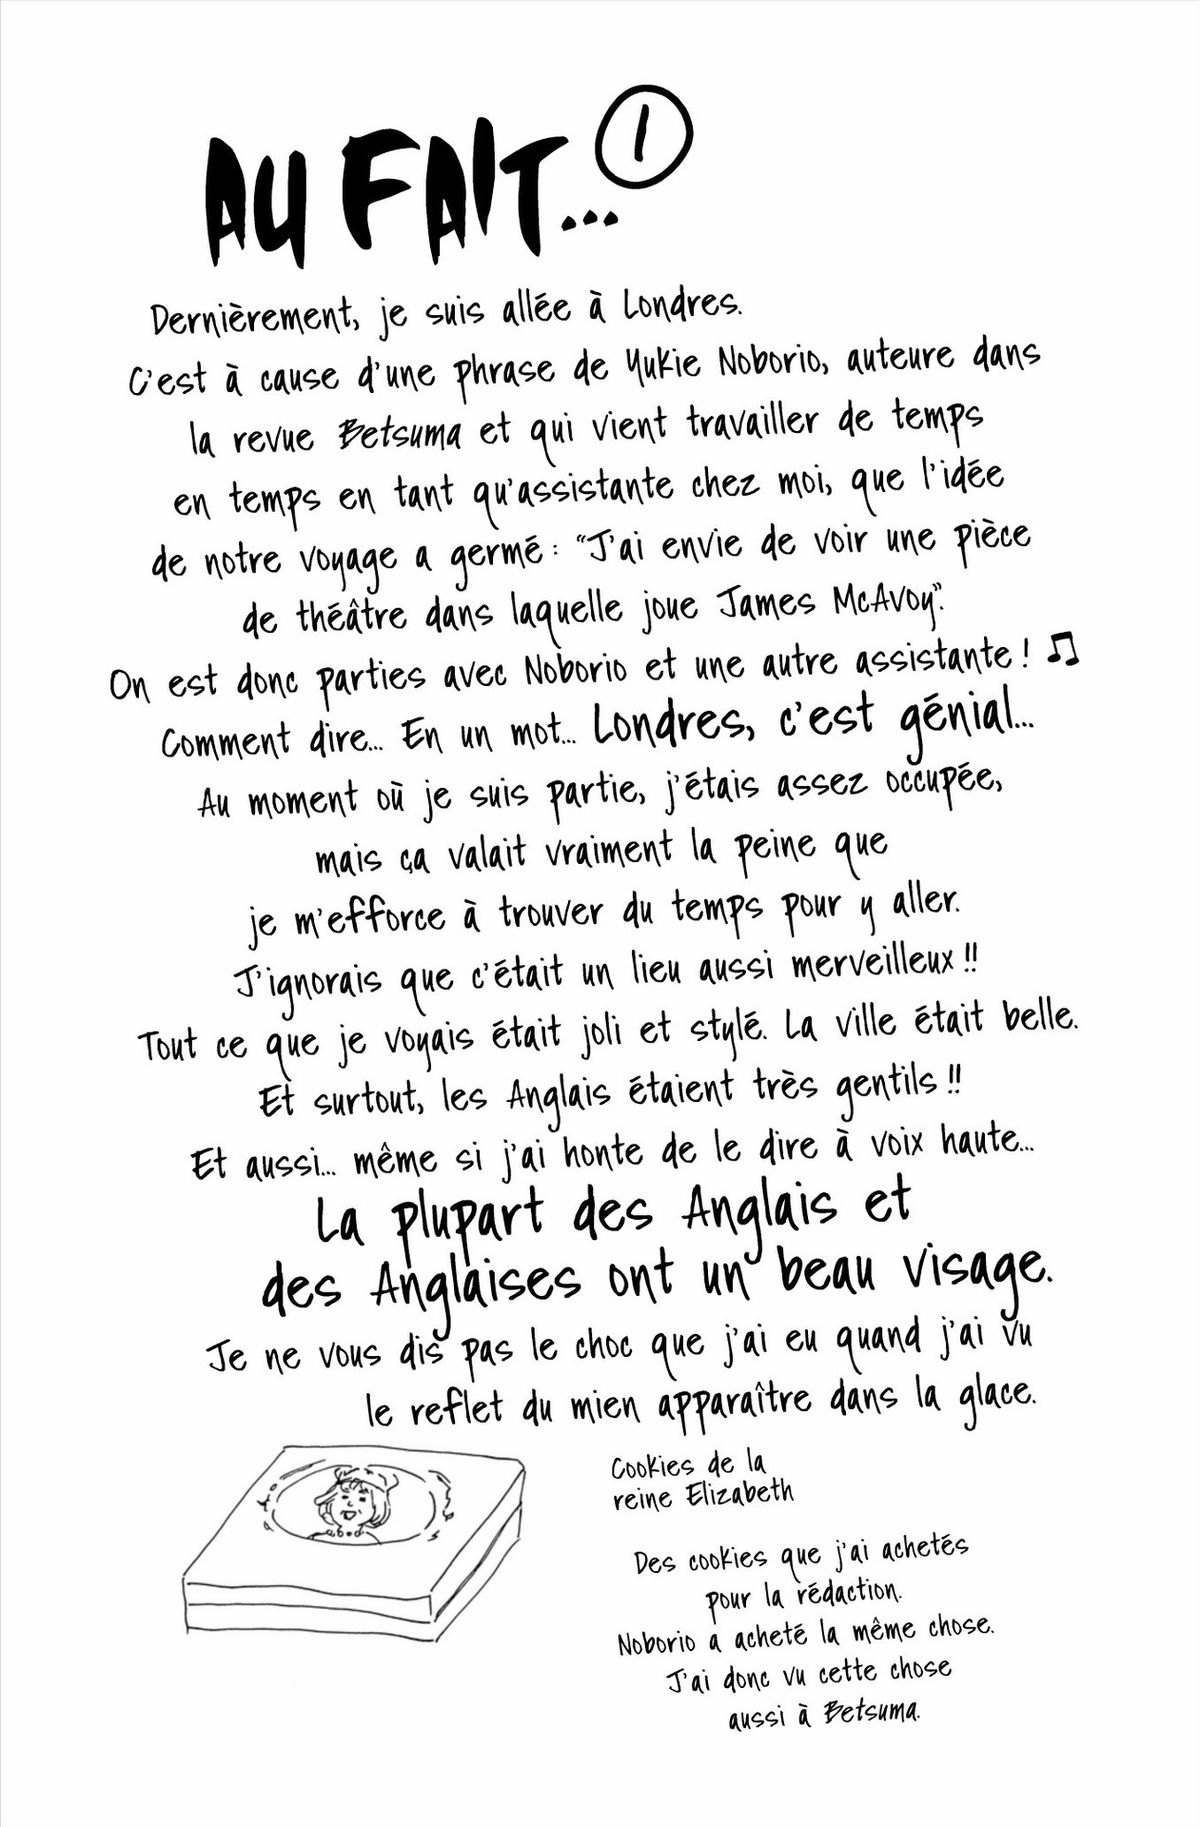 AU FAIT... 1
Dernièrement, je suis allée à Londres.
C'est à cause d'une phrase de Yukie Noborio, auteure dans
la revue Betsuma et qui vient travailler de temps
en temps en tant qu'assistante chez moi, que l'idée
de notre voyage a germé : "J'ai envie de voir une pièce
de théâtre dans laquelle joue James McAvoy".
On est donc parties avec Noborio et une autre assistante ! ♫
Comment dire... En un mot... Londres, c'est génial...
Au moment où je suis partie, j'étais assez occupée,
mais ça valait vraiment la peine que
je m'efforce à trouver du temps pour y aller.
J'ignorais que c'était un lieu aussi merveilleux !!
Tout ce que je voyais était joli et stylé. La ville était belle.
Et surtout, les Anglais étaient très gentils !!
Et aussi... même si j'ai honte de le dire à voix haute...
La plupart des Anglais et
des Anglaises ont un beau visage.
Je ne vous dis pas le choc que j'ai eu quand j'ai vu
le reflet du mien apparaître dans la glace.
Cookies de la
reine Elizabeth
Des cookies que j'ai achetés
pour la rédaction.
Noborio a acheté la même chose.
J'ai donc vu cette chose
aussi à Betsuma.